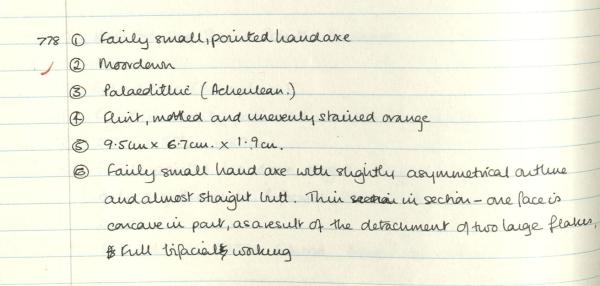 778 ① Fairly small, pointed handaxe
② Moordown
③ Palaeolithic (Acheulean.)
④ Flint, mottled and unevenly stained orange
⑤ 9.5cm x 6.7cm. x 1.9cm.
⑥ Fairly small hand axe with slightly asymmetrical outline
and almost straight butt. Thin section in section – one face is
concave in part, as a result of the detachment of two large flakes,
Full bifacial working